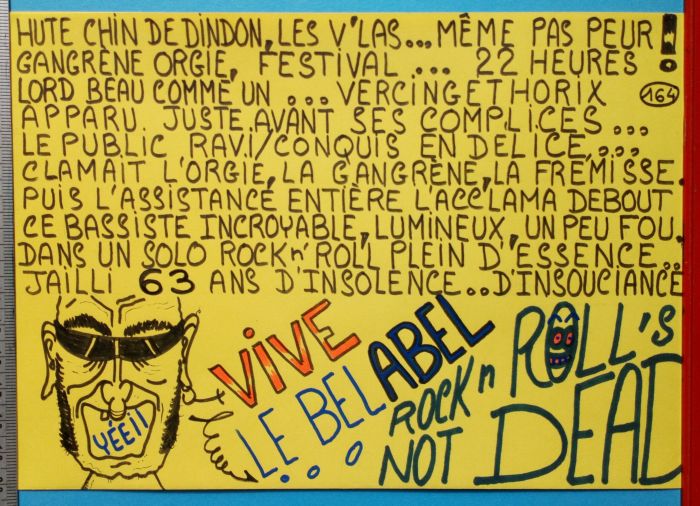 HUTE CHIN DE DINDON, LES V'LAS... MÊME PAS PEUR !
GANGRÈNE ORGIE, FESTIVAL... 22 HEURES
LORD BEAU COMME UN... VERCINGETHORIX 164
APPARU. JUSTE AVANT SES COMPLICES...
LE PUBLIC RAVI/CONQUIS EN DELICE...
CLAMAIT L'ORGIE, LA GANGRÈNE, LA FRÉMISSE.
PUIS L'ASSISTANCE ENTIÈRE L'ACCLAMA DEBOUT
CE BASSISTE INCROYABLE, LUMINEUX, UN PEU FOU.
DANS UN SOLO ROCK n' ROLL PLEIN D'ESSENCE..
JAILLI 63 ANS D'INSOLENCE.. D'INSOUCIANCE
YÉEII
VIVE
LE BEL ABEL
ROCK n ROLL'S
NOT DEAD